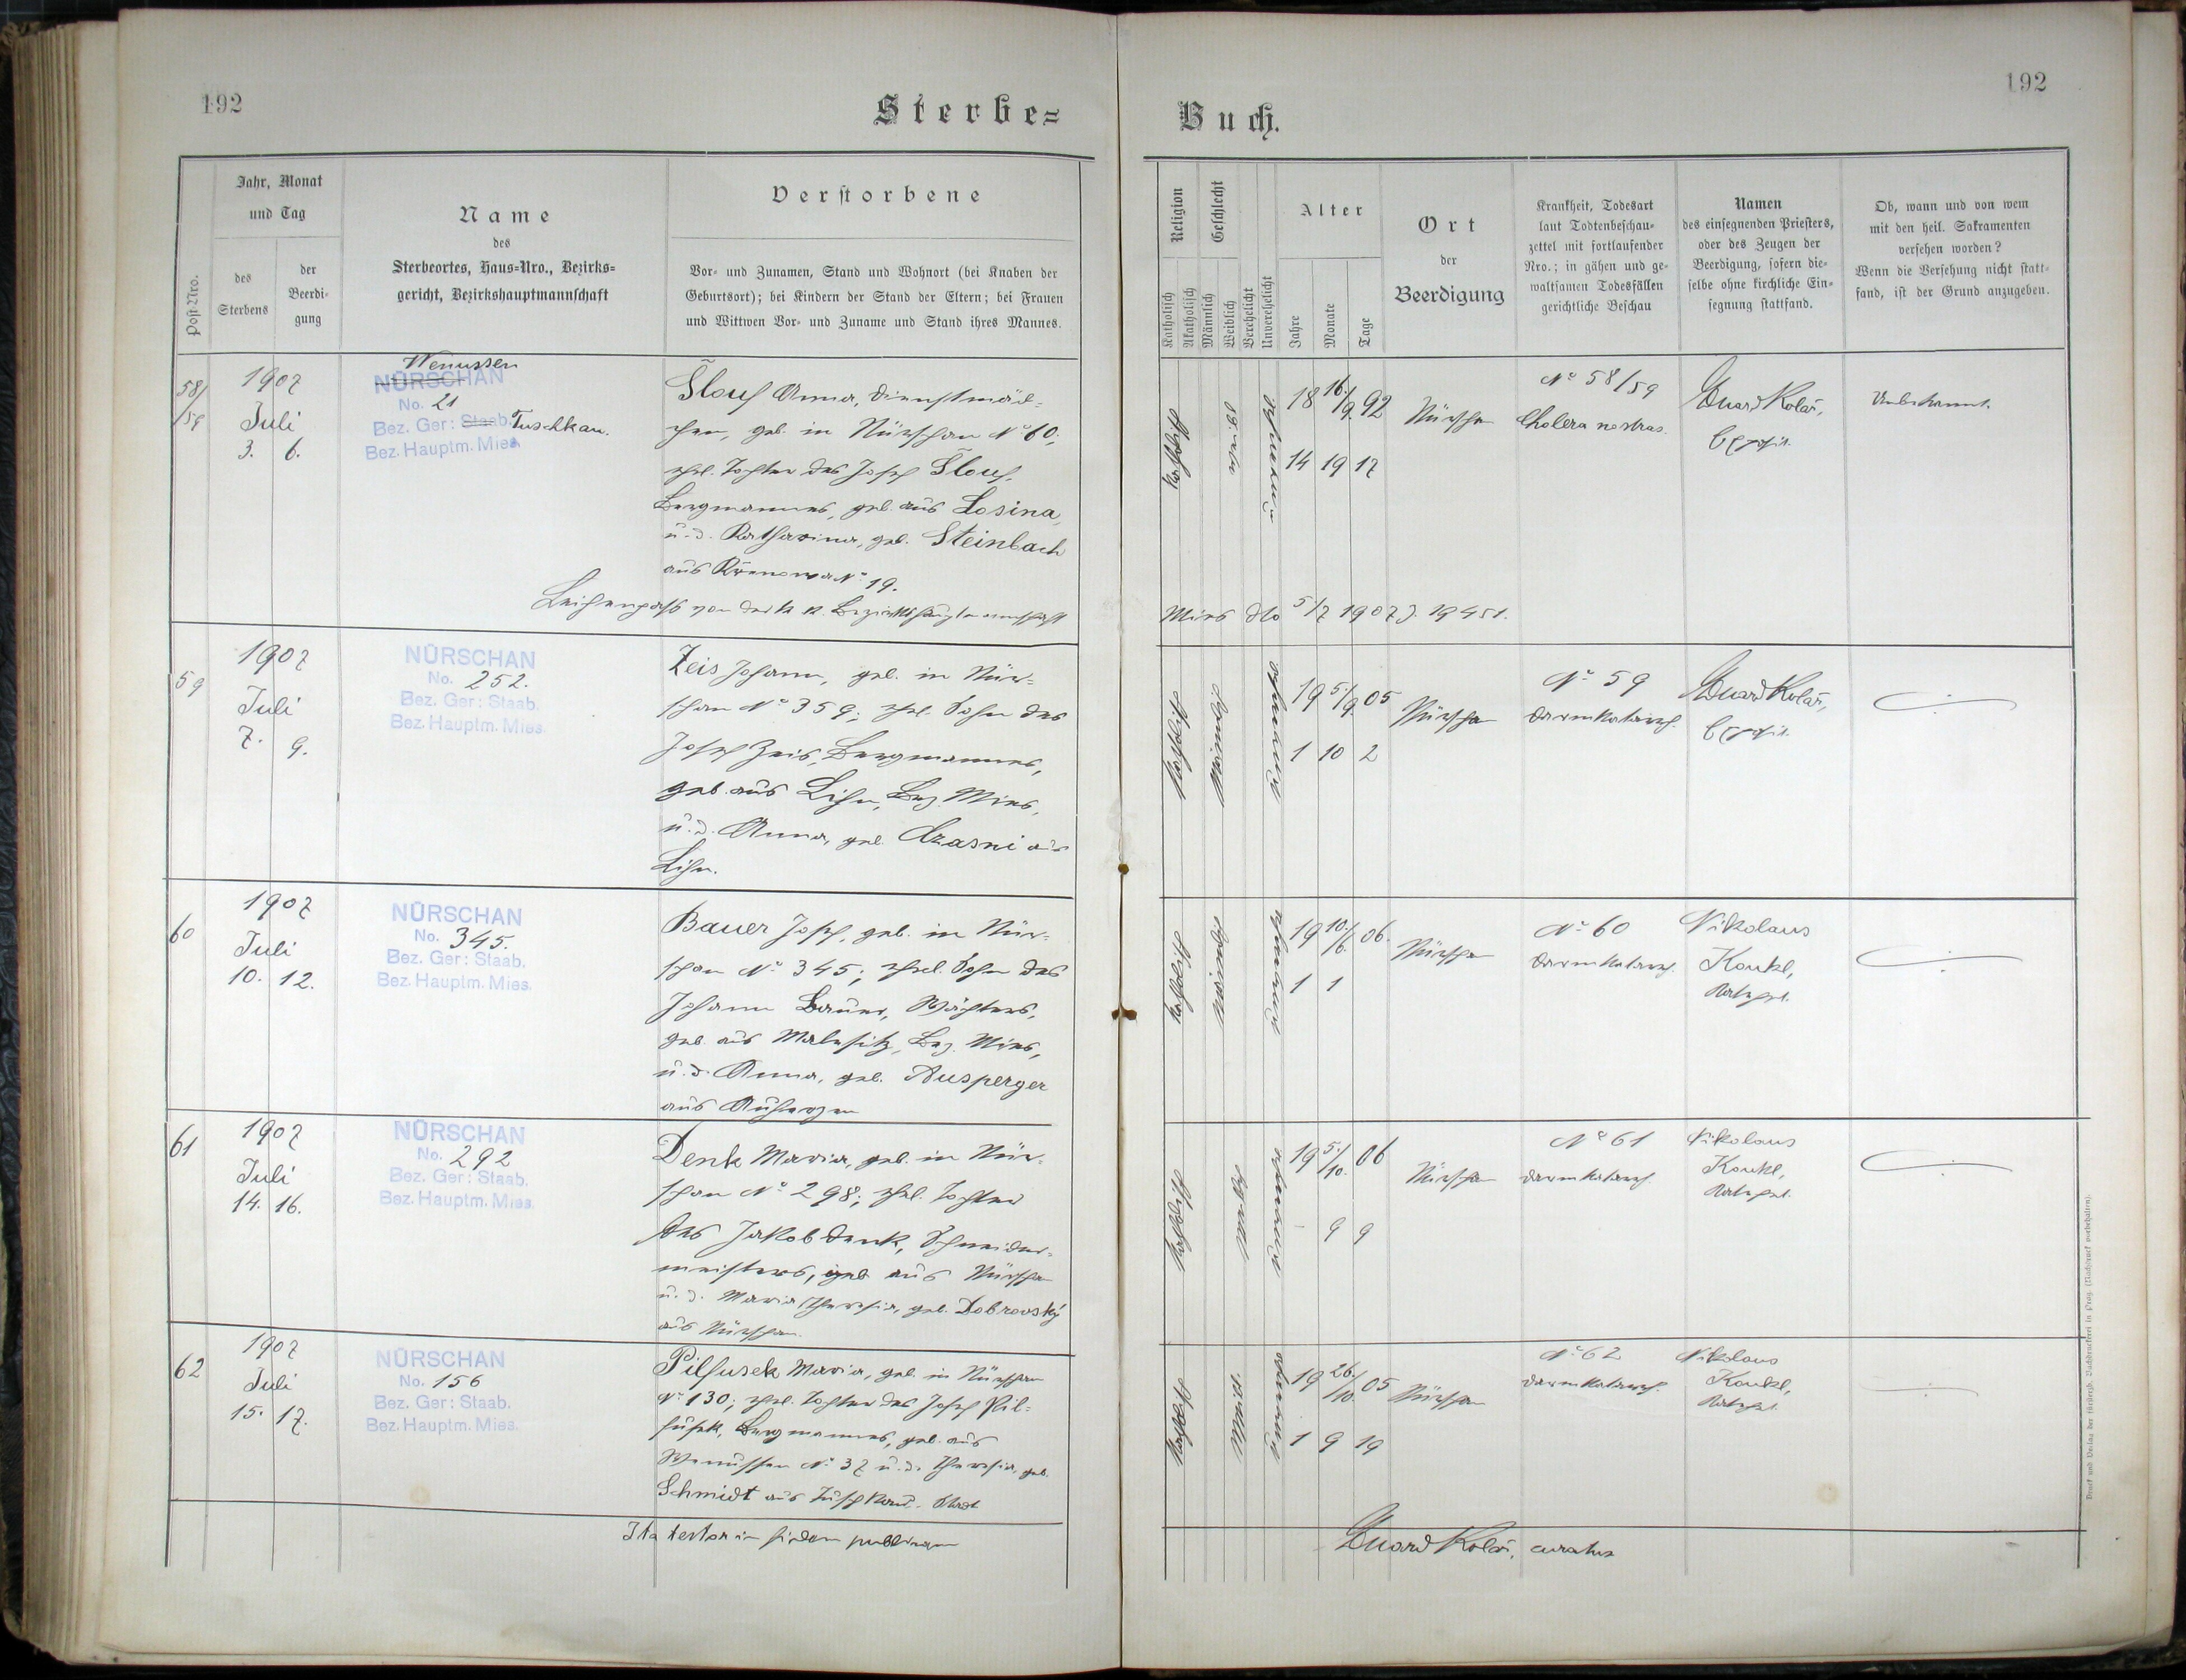 192
Sterbe=
Jahr, Monat
und Tag
Post-Nro.
des
Sterbens
der
Beerdi-
gung
Name
des
Sterbeortes, Haus-Nro., Bezirks-
gericht, Bezirkshauptmannschaft
Verstorbene
Vor- und Zunamen, Stand und Wohnort (bei Knaben der
Geburtsort); bei Kindern der Stand der Eltern; bei Frauen
und Wittwen Vor- und Zuname und Stand ihres Mannes.
58/
/59
1907
Juli
3. 6.
Wenussen
NÜRSCHAN
No. 21
Bez. Ger: Staab. Tuschkau.
Bez. Hauptm. Mies
Šlouf Anna, Dienstmäd-
chen, geb. in Nürschan No 60;
ehel. Tochter des Josef Šlouf,
Bergmannes, geb. aus Losina,
u. d. Katharina, geb. Steinbach
aus Křenowa No 19.
Leichenpass von der k. k. Bezirkshauptmannschaft
59
1907
Juli
7. 9.
NÜRSCHAN
No. 252.
Bez. Ger: Staab.
Bez. Hauptm. Mies.
Zeis Johann, geb. in Nür-
schan No 359; ehel. Sohn des
Josef Zeis, Bergmannes,
geb. aus Lihn, Bez. Mies,
u. d. Anna, geb. Czasni aus
Lihn.
60
1907
Juli
10. 12.
NÜRSCHAN
No. 345.
Bez. Ger: Staab.
Bez. Hauptm. Mies.
Bauer Josef, geb. in Nür-
schan No 345; ehel. Sohn des
Johann Bauer, Wächters,
geb. aus Malesitz, Bez. Mies,
u. d. Anna, geb. Ausperger
aus Auherzen
61
1907
Juli
14. 16.
NÜRSCHAN
No. 292
Bez. Ger: Staab.
Bez. Hauptm. Mies.
Denk Maria, geb. in Nür-
schan No 298; ehel. Tochter
des Jakob Denk, Schneider-
meisters, geb. aus Nürschan
u. d. Maria Theresia, geb. Dobrovský
aus Nürschan.
62
1907
Juli
15. 17.
NÜRSCHAN
No. 156
Bez. Ger: Staab.
Bez. Hauptm. Mies.
Pilfusek Maria, geb. in Nürschan
No 130; ehel. Tochter des Josef Pil-
fusek, Bergmannes, geb. aus
Wenussen No 37 u. d. Theresia, geb.
Schmidt aus Tuschkau-Stadt
Ita testor in fidem publicam
192
Buch.
Religion
Katholisch
Akatholisch
Geschlecht
Männlich
Weiblich
Verehelicht
Unverehelicht
Alter
Jahre
Monate
Tage
Ort
der
Beerdigung
Krankheit, Todesart
laut Todtenbeschau-
zettel mit fortlaufender
Nro.; in gähen und ge-
waltsamen Todesfällen
gerichtliche Beschau
Namen
des einsegnenden Priesters,
oder des Zeugen der
Beerdigung, sofern die-
selbe ohne kirchliche Ein-
segnung stattfand.
Ob, wann und von wem
mit den heil. Sakramenten
versehen worden?
Wenn die Versehung nicht statt-
fand, ist der Grund anzugeben.
Katholisch
18 16./9. 92
14 19 17
Nürschan
No 58/59
Cholera nostras.
Eduard Kolář,
Exposit.
Unbekannt.
Mies dto 5/7 1907 Z. 19451.
Katholisch
Männlich
19 5./9. 05
1 10 2
Nürschan
No 59
Darmkatarrh.
Eduard Kolář,
Exposit.
Katholisch
Männlich
19 10./6. 06.
1 1
Nürschan
No 60
Darmkatarrh.
Nikolaus
Koukl,
Katechet.
Katholisch
Weiblich
19 5./10. 06
- 9 9
Nürschan
No 61
Darmkatarrh
Nikolaus
Koukl,
Katechet.
Katholisch
Weiblich
19 26./10. 05
1 9 19
Nürschan
No 62
Darmkatarrh.
Nikolaus
Koukl,
Katechet.
Eduard Kolář, curatus
Druck und Verlag der fürsterzb. Buchdruckerei in Prag. (Nachdruck vorbehalten).